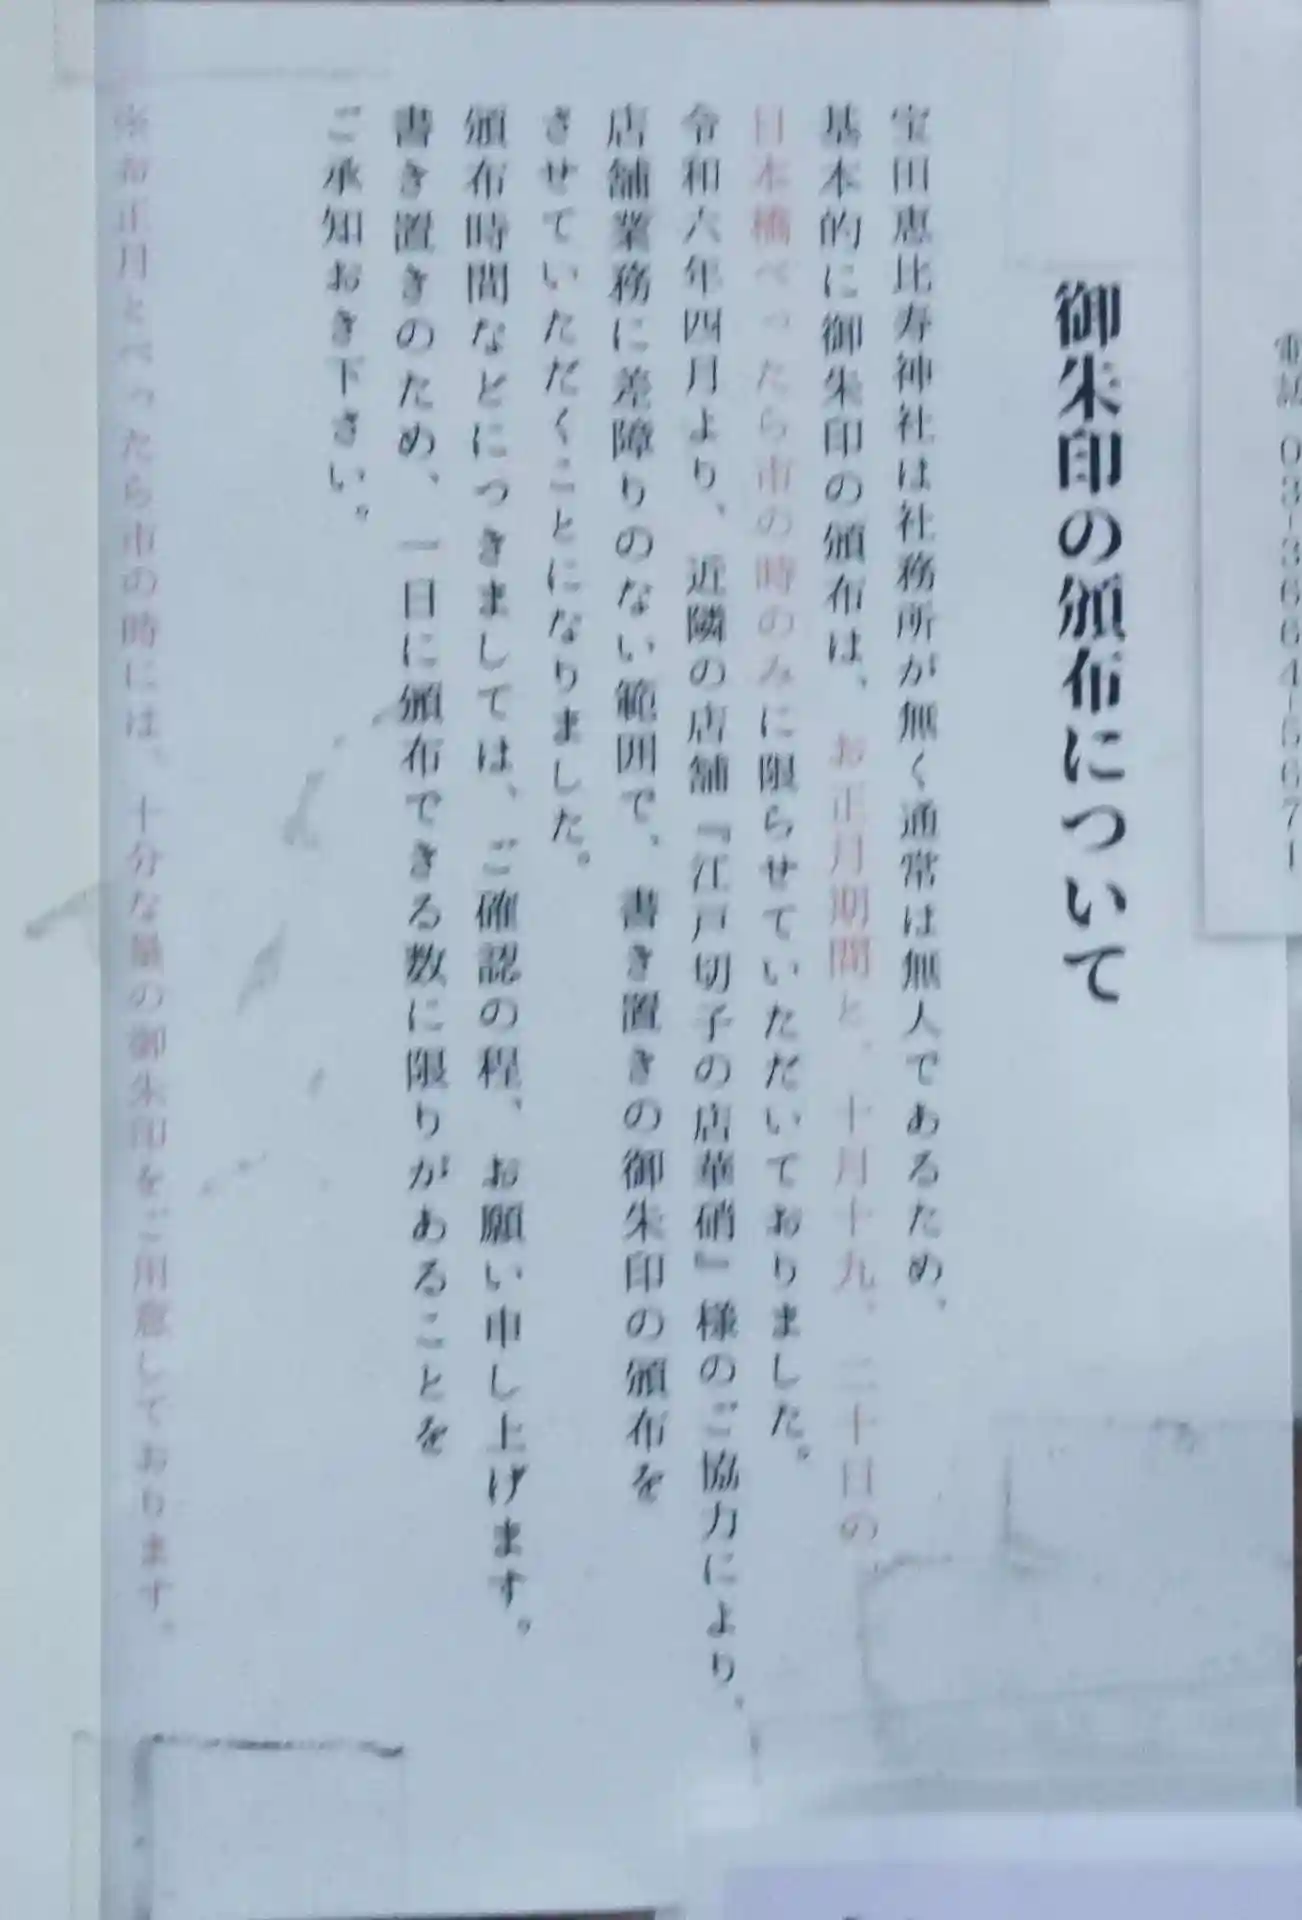 電話 03-3664-5671
御朱印の頒布について
宝田恵比寿神社は社務所が無く通常は無人であるため、
基本的に御朱印の頒布は、お正月期間と、十月十九、二十日の
日本橋べったら市の時のみに限らせていただいておりました。
令和六年四月より、近隣の店舗『江戸切子の店華硝』様のご協力により、
店舗業務に差障りのない範囲で、書き置きの御朱印の頒布を
させていただくことになりました。
頒布時間などにつきましては、ご確認の程、お願い申し上げます。
書き置きのため、一日に頒布できる数に限りがあることを
ご承知おき下さい。
※お正月とべったら市の時には、十分な量の御朱印をご用意しております。